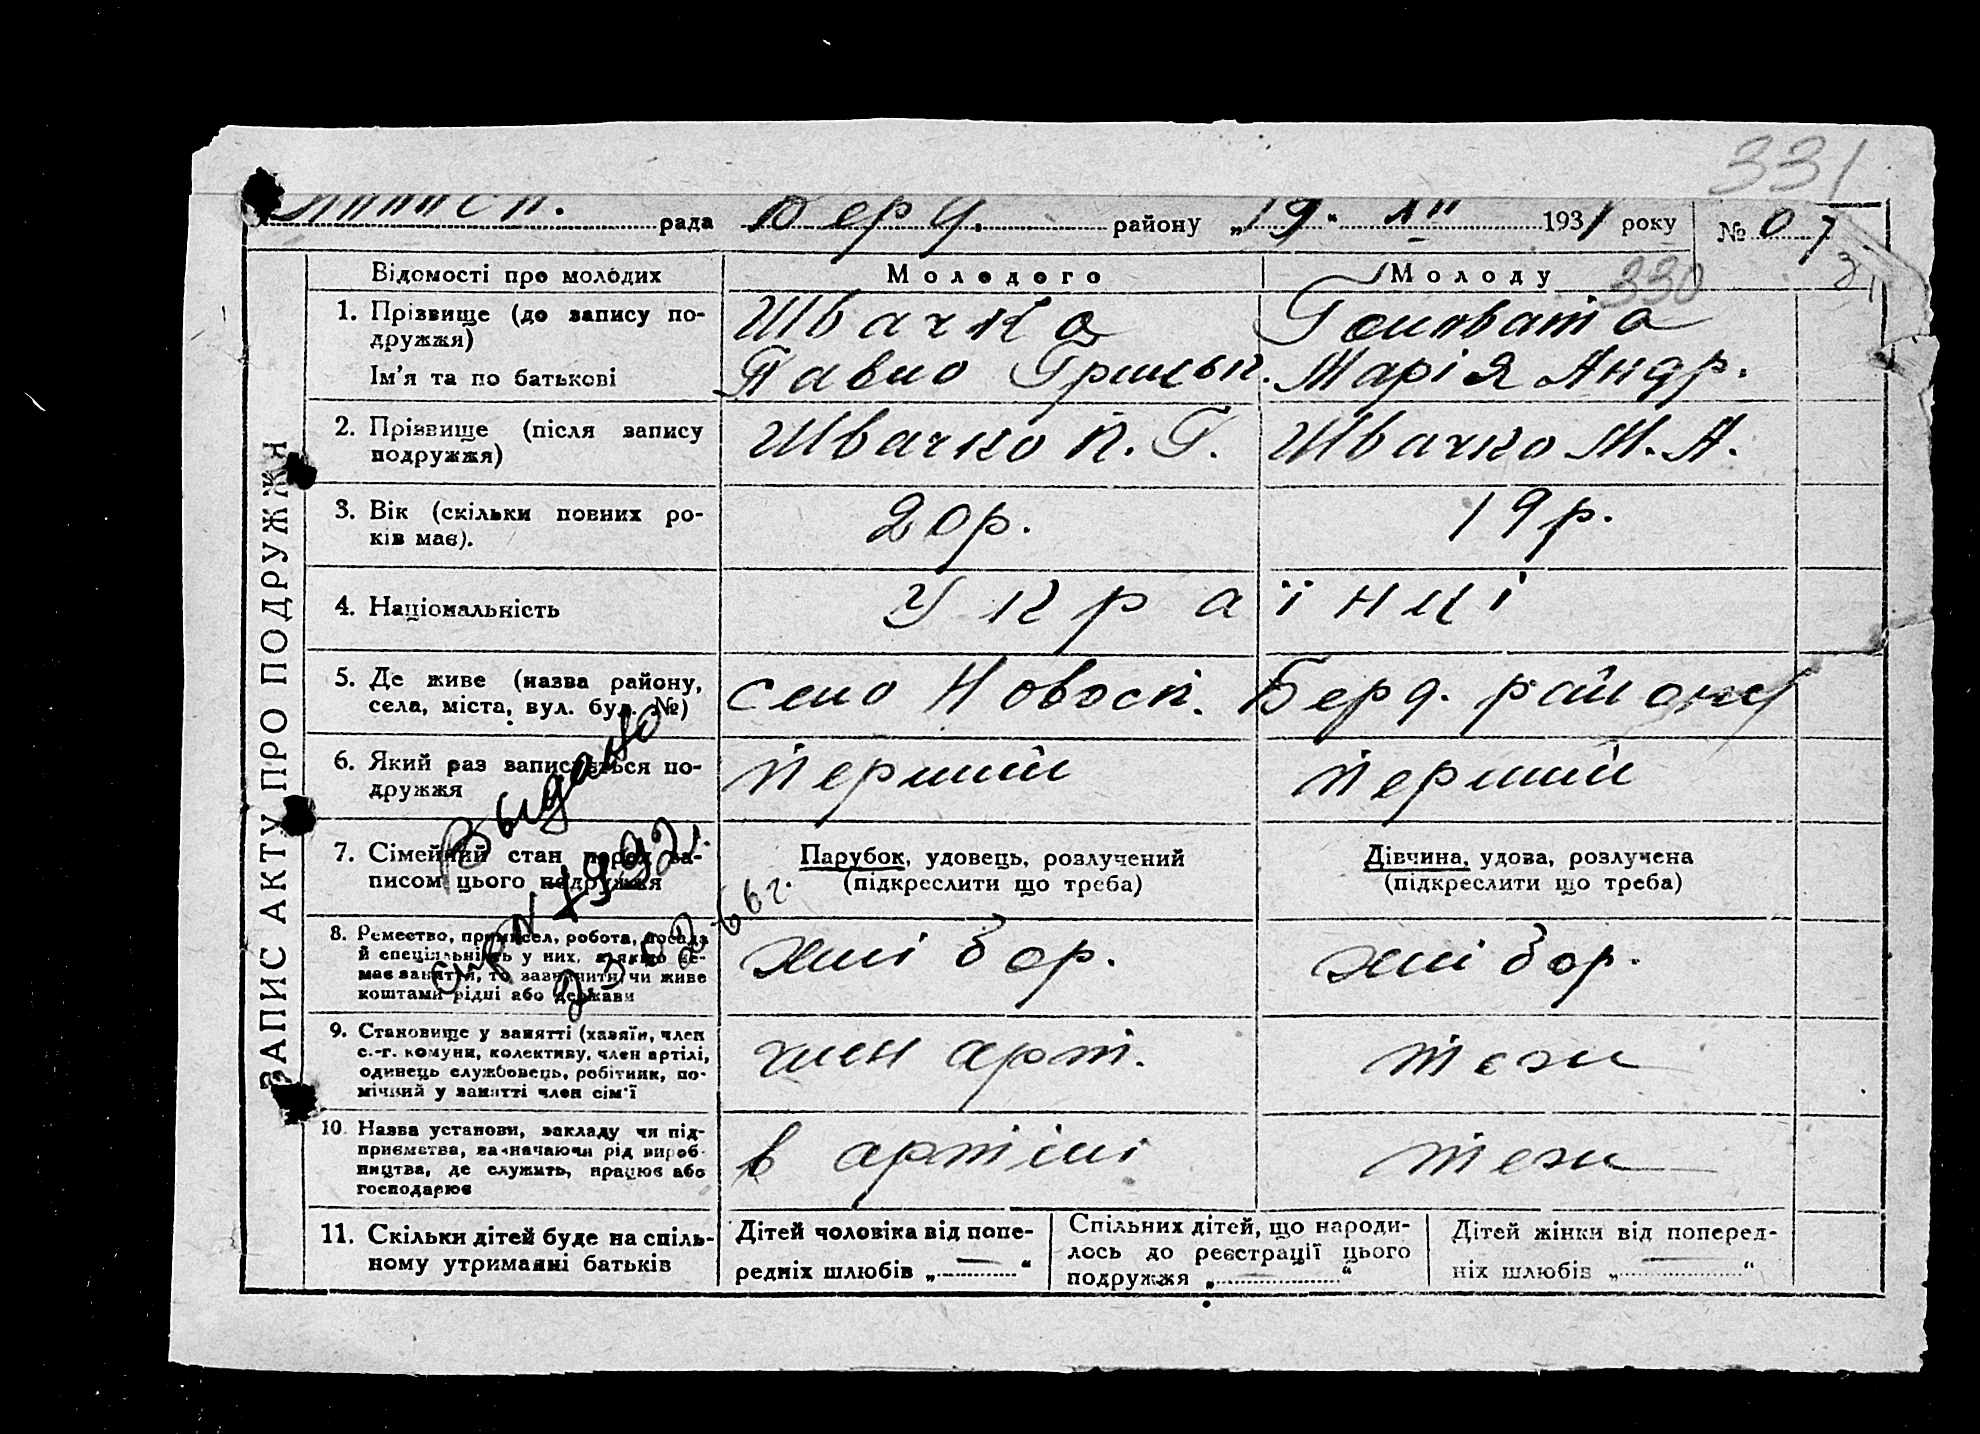 331
рада Берд. району „19“ 1931 року № 07
330
ЗАПИС АКТУ ПРО ПОДРУЖЖЯ
Відомості про молодих Молодого Молоду
1. Прізвище (до запису по-
дружжя)
Швачко Головата
Ім'я та по батькові
Павло Григ. Марія Андр.
2. Прізвище (після запису
подружжя)
Швачко П. Г. Швачко М. А.
3. Вік (скільки повних ро-
ків має).
20р. 19р.
4. Національність
Українці
5. Де живе (назва району,
села, міста, вул. буд. №)
село Новосп. Берд. району
6. Який раз записується по-
дружжя
перший перший
7. Сімейний стан перед за-
писом цього подружжя
Парубок, удовець, розлучений
(підкреслити що треба)
Дівчина, удова, розлучена
(підкреслити що треба)
Выдано
8. Ремество, промисел, робота, посада
й спеціяльність у них, а якщо не-
має заняття, то зазначити, чи живе
коштами рідні або держави
хлібор. хлібор.
9. Становище у занятті (хазяїн, член
с.-г. комуни, колективу, член артілі,
одинець службовець, робітник, по-
мічний у занятті член сім'ї
член арт. теж
10. Назва установи, закладу чи під-
приємства, зазначаючи рід вироб-
ництва, де служить, працює або
господарює
в артілі теж
11. Скільки дітей буде на спіль-
ному утриманні батьків
Дітей чоловіка від попе-
редніх шлюбів „—“
Спільних дітей, що народи-
лось до реєстрації цього
подружжя „—“
Дітей жінки від поперед-
ніх шлюбів „—“